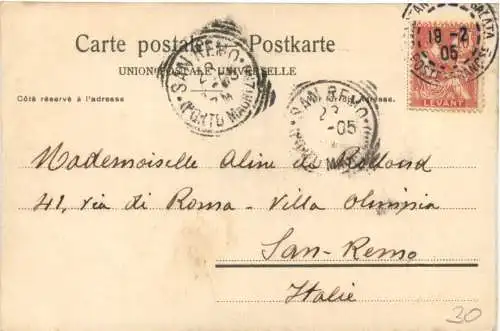 Carte postale Postkarte
UNION POSTALE UNIVERSELLE
Côté réservé à l'adresse
SAN REMO
(PORTO MAURIZIO)
SAN REMO
-05
GALATA
19-2
05
POSTE FRANÇSE
LEVANT
Mademoiselle Aline de
41, via di Roma - Villa Olimpia
San-Remo
Italie
20